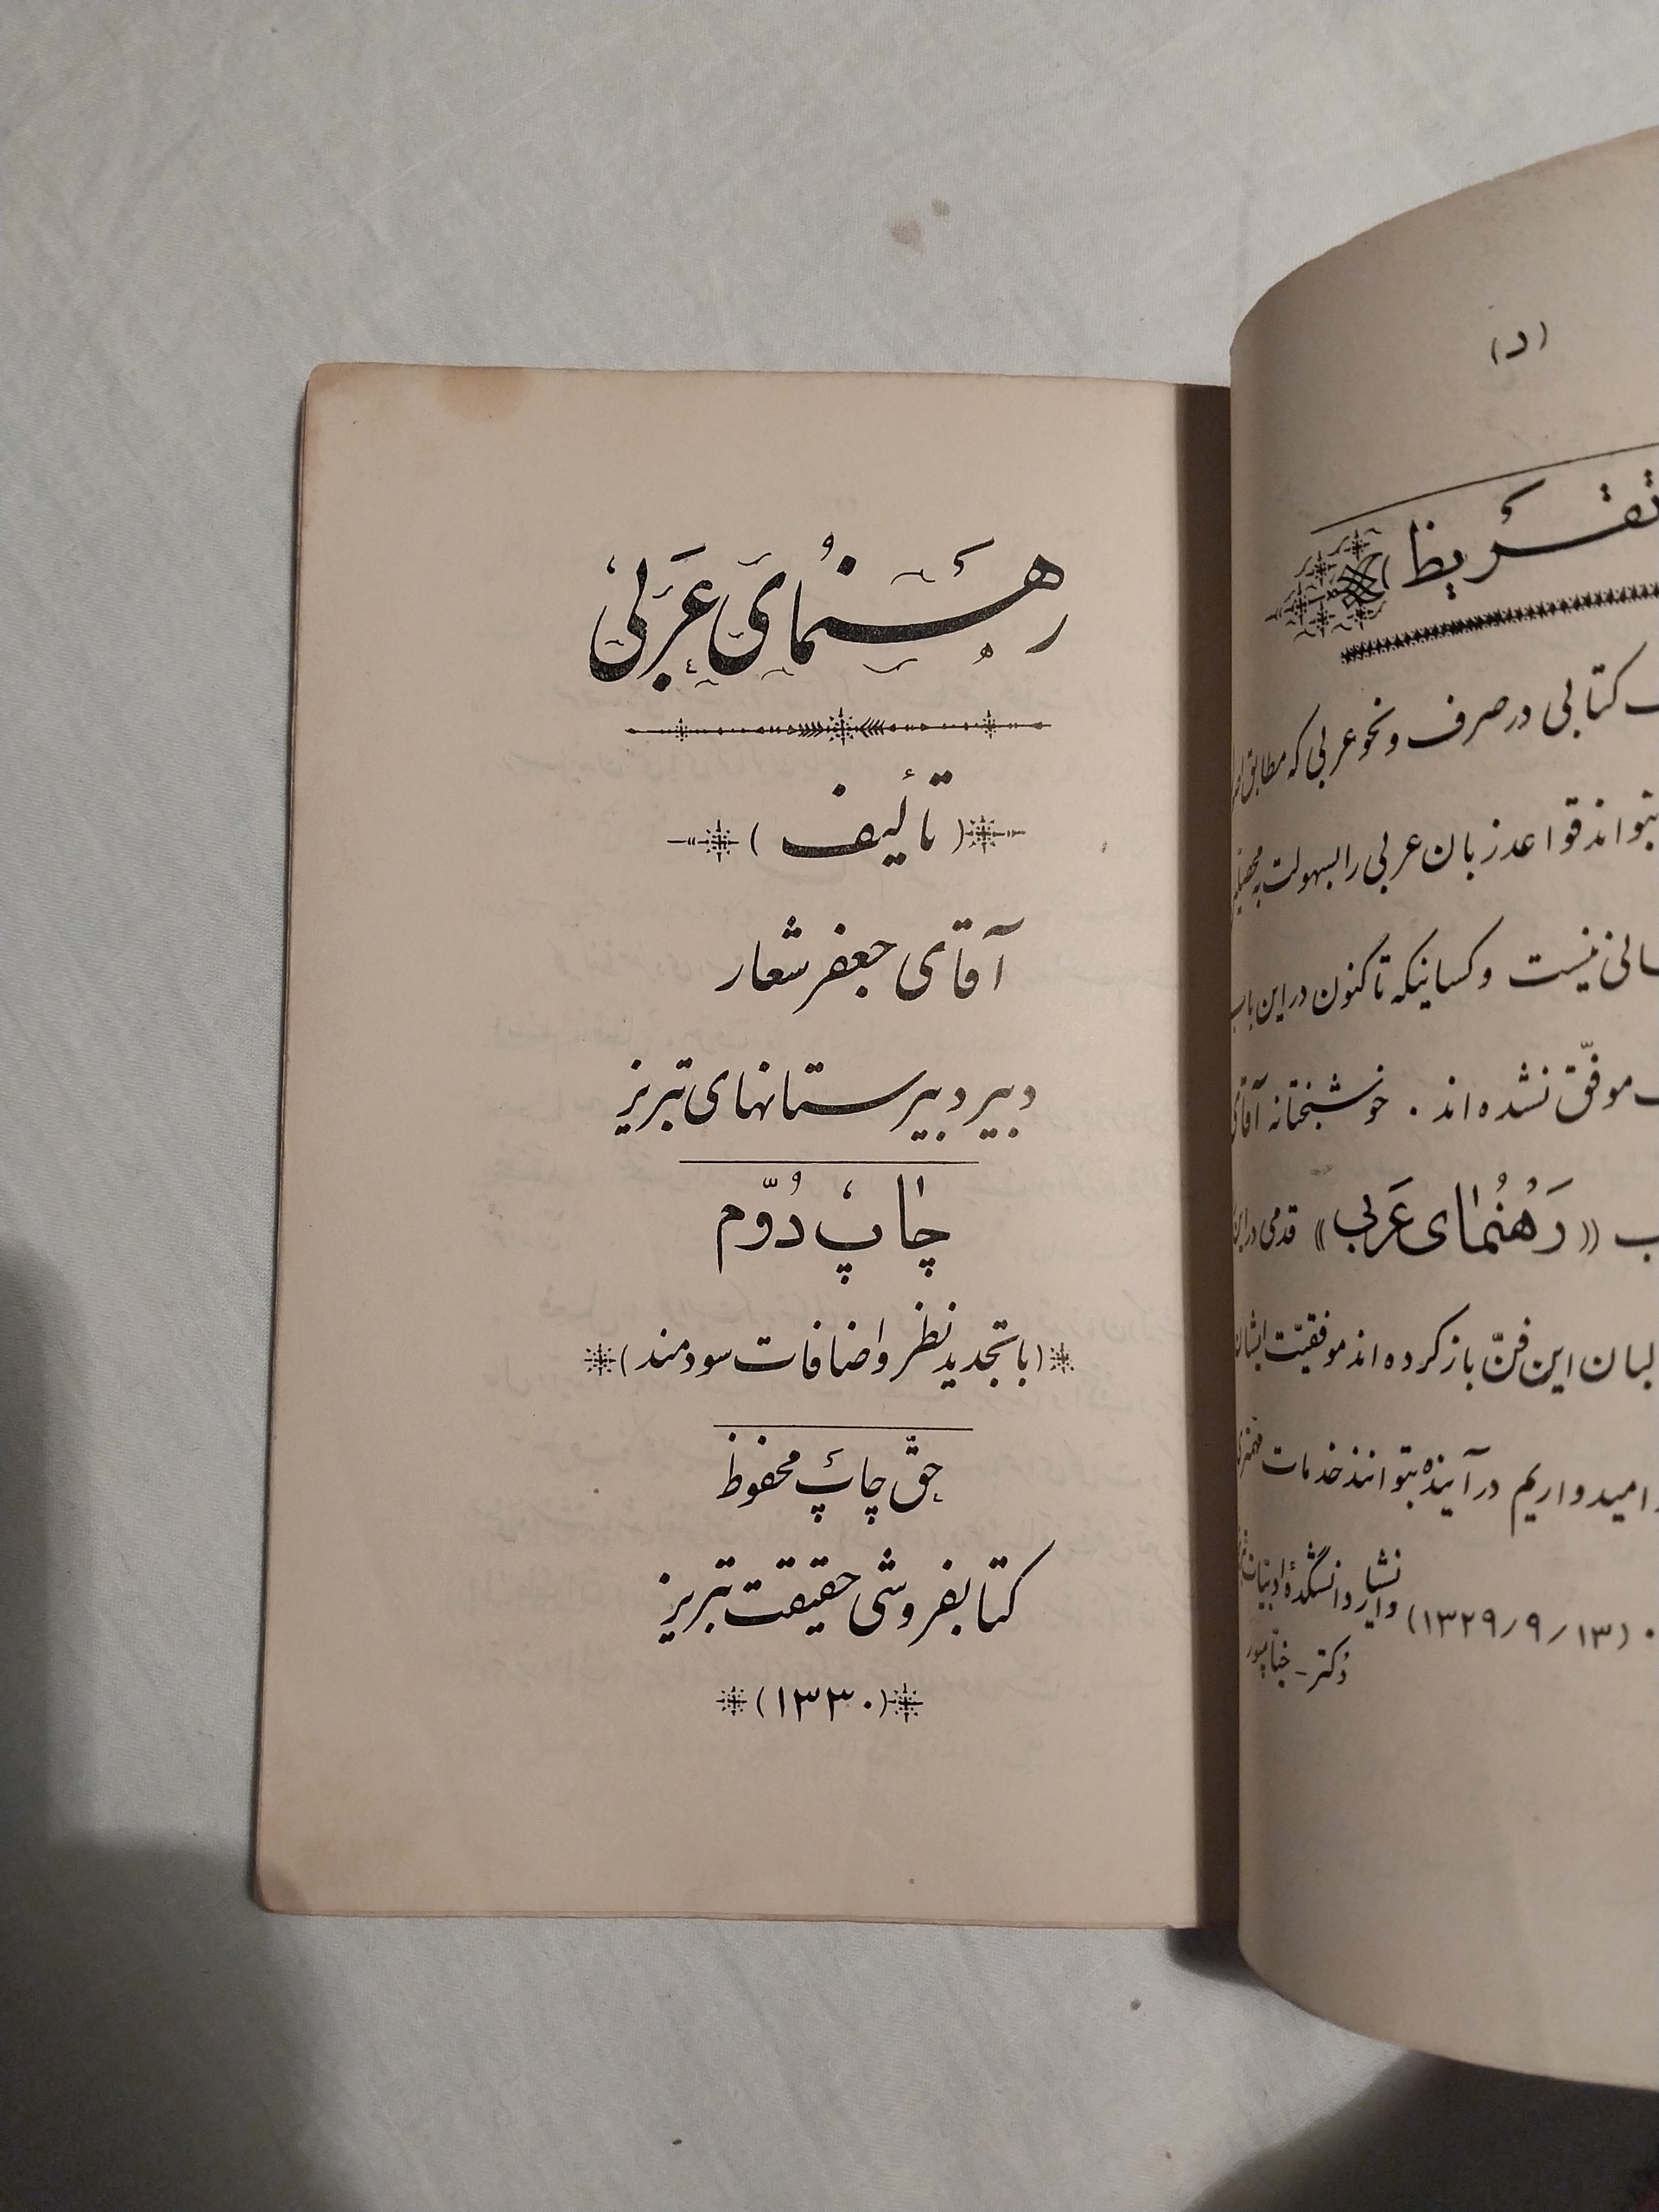 رهنمای عربی
(تألیف)
آقای جعفر شعار
دبیر دبیرستانهای تبریز
چاپ دوّم
(با تجدید نظر و اضافات سودمند)
حقّ چاپ محفوظ
کتابفروشی حقیقت تبریز
(۱۳۳۰)
(د)
تقریظ
کتابی در صرف و نحو عربی که مطابق
بتواند قواعد زبان عربی را بسهولت به
نیست و کسانیکه تا کنون در این باب
موفّق نشده اند . خوشبختانه آقای
«رَهنُمای عَربی» قدمی در این
این فنّ باز کرده اند موفقیّت ایشان
امیدواریم در آینده بتوانند خدمات
(۱۳۲۹/۹/۱۳)
دکتر -